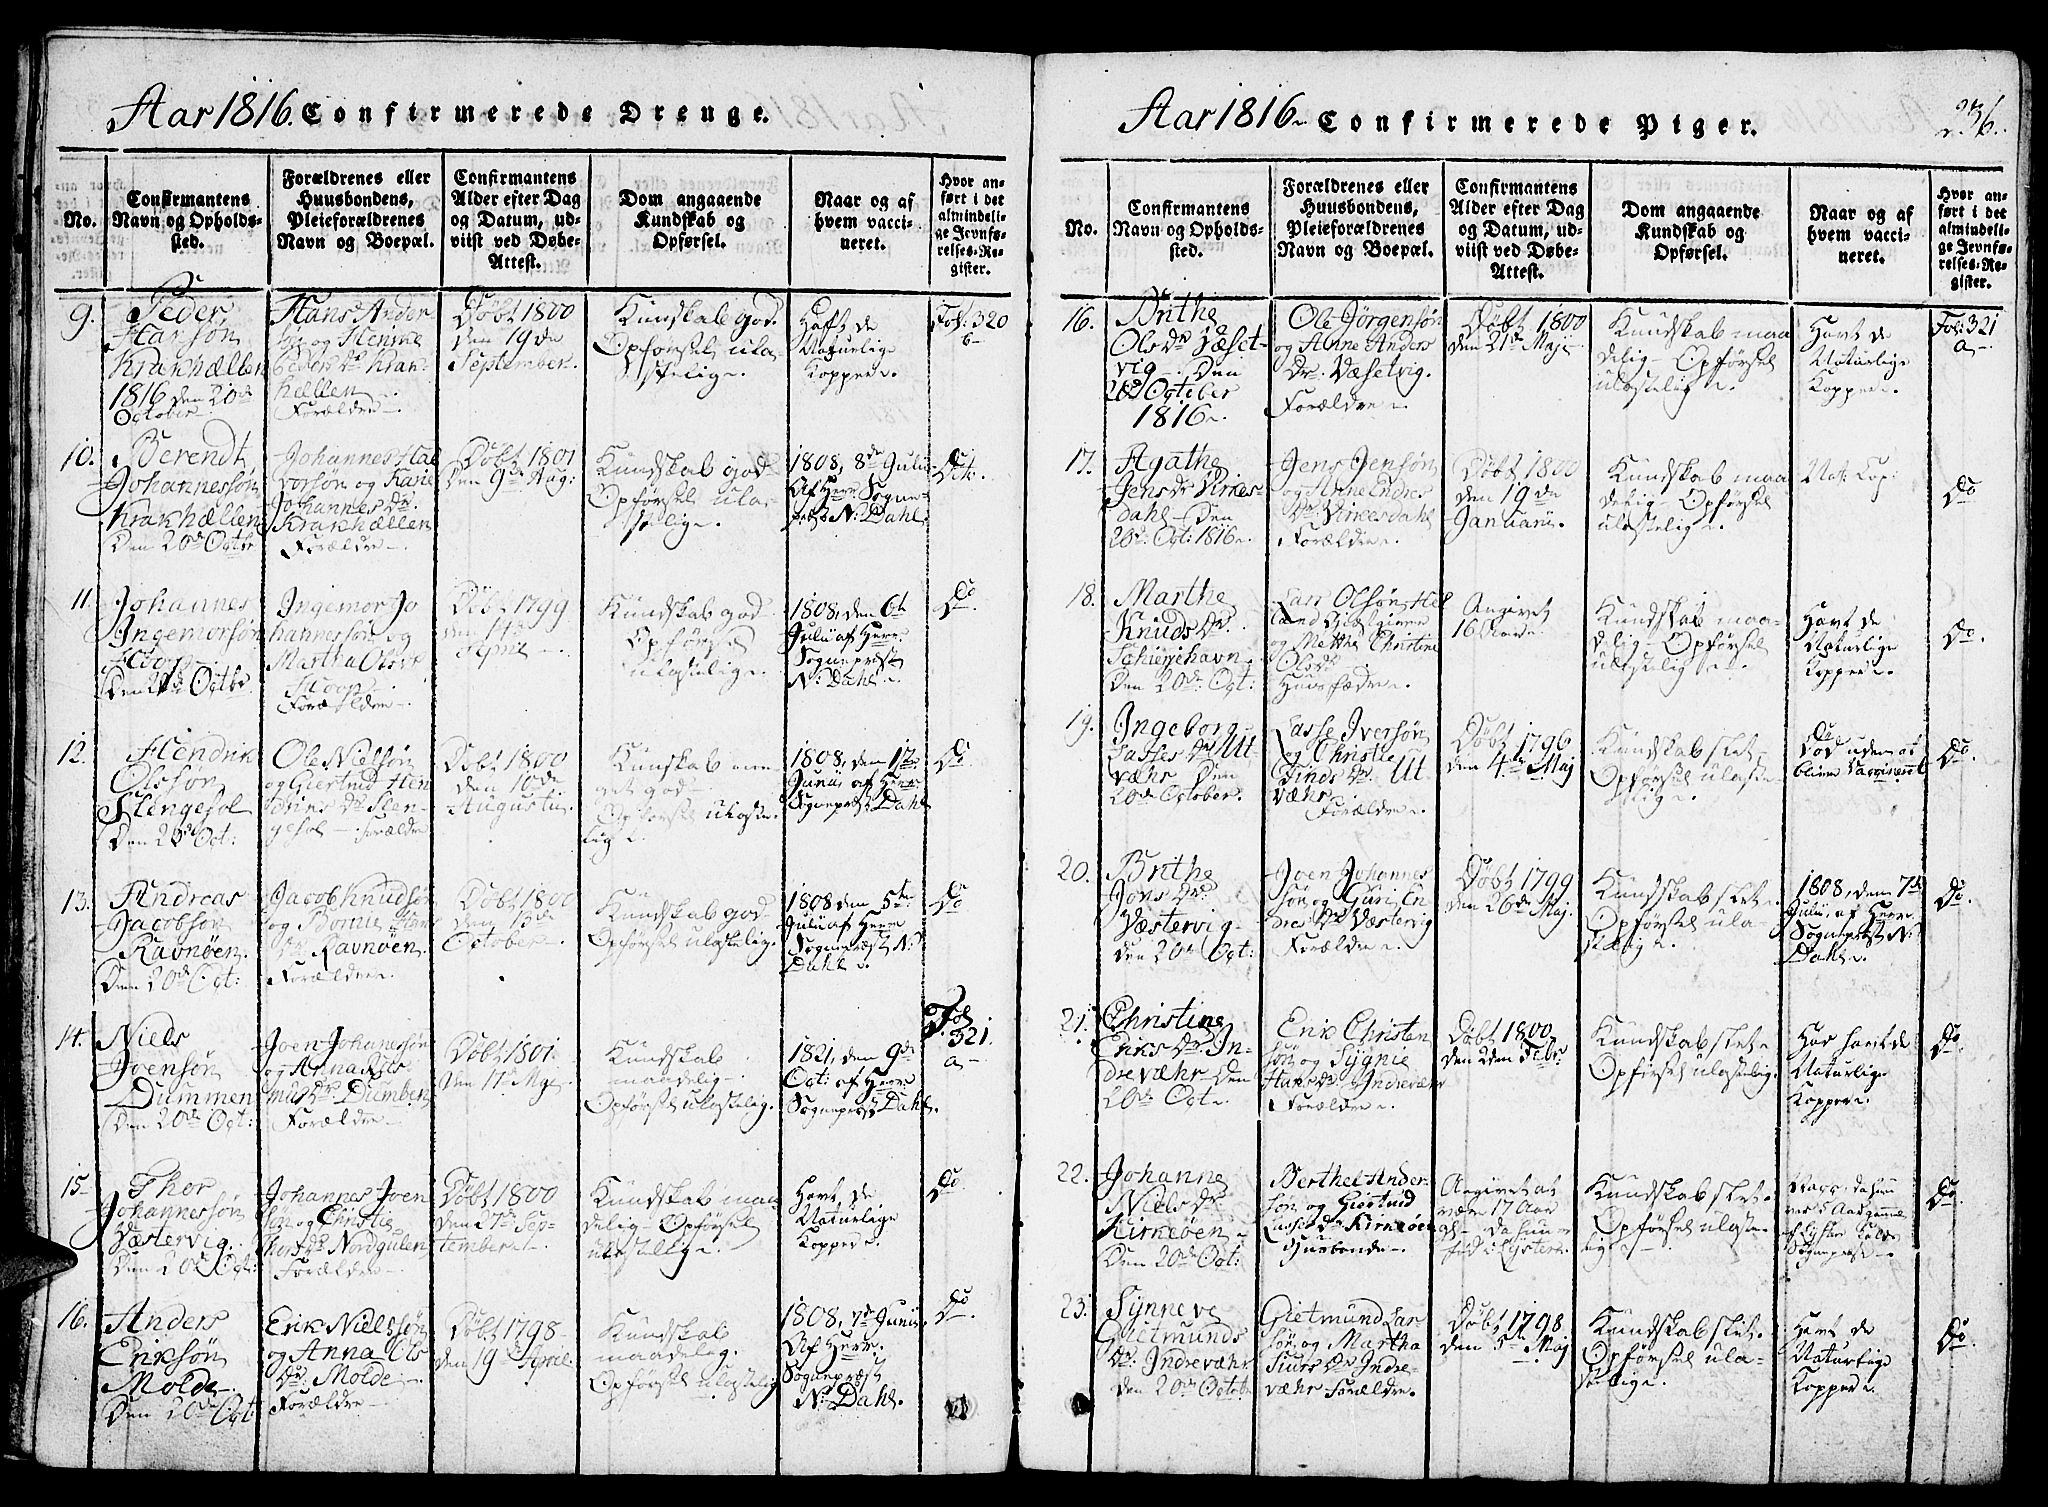 Aar 1816. Confirmerede Drenge.
No.
Confirmantens
Navn og Opholds-
sted.
Forældrenes eller
Huusbondens,
Pleieforældrenes
Navn og Boepæl.
Confirmantens
Alder efter Dag
og Datum, ud-
viist ved Døbe-
Attest.
Dom angaaende
Kundskab og
Opførsel.
Naar og af
hvem vacci-
neret.
Hvor an-
ført i det
almindeli-
ge Jevnfø-
relses-Re-
gister.
9.
Peder
Hansøn
Krakhællen
1816 den 20de
October
Hans Ander
søn og
Peders Dr. Krak
hællen
Forældre
Døbt 1800
den 19de
September
Kundskab god.
Opførsel ula-
stelig
Haft de
Naturlige
Kopper
Fol: 320
b
10.
Berendt
Johannessøn
Krakhællen
Den 20de Octbr
Johannes Hal
vorsøn og Karie
Johannes Dr.
Krakhællen
Forældre
Døbt 1801
Den 9de Aug:
Kundskab god
Opførsel ula-
stelig
1808, 8de Juli
Af Herr Sogne-
præst N: Dahl
Dit:
11.
Johannes
Ingemorsøn
Den 20de Octbr
Ingemor Jo
hannessøn og
Martha Ols Dr
Forældre
Døbt 1799
den 14de
April
Kundskab god
Opførsel
ulastelig
1808, den 6te
Julii af Herr
Sognepræst
N: Dahl
Do
12.
Hendrik
Olssøn
Stengesol
Den 20de Oct:
Ole Nielsøn
og Giertrud Hen
driks Dr Sten-
gesol Forældre
Døbt 1800
den 10de
Augustii
Kundskab me-
get god
Opførsel ulaste-
lig
1808, den
Junii, af Herr
Sognepræst Dahl
Do
13.
Andreas
Jacobsøn
Ravnøen
Den 20de Oct:
Jacob Knudsøn
og
Dr Ravnøen
Forældre
Døbt 1800
den
October
Kundskab god
Opførsel ulastelig.
1808 den 5te
Julii af Herr
Sognepræst N:
Dahl
Do
14.
Niels
Joensøn
Dummen
Den 20de Oct:
Joen Johannessøn
og Anna Ras
mus Dr Dumben
Forældre
Døbt 1801.
den
Kundskab
maadelig
Opførsel ulastelig.
1821, den 9de
Oct: af Herr
Sognepræst Dahl
Fol
321.
a
15
Thor
Johannessøn
Væstervig.
Den 20de Oct:
Johannes Joen
søn og Christie
Thors Dr Nordgulen
Forældre
Døbt 1800
den 27de Sep-
tember
Kundskab maa
delig Opførsel
ulastelig
Havt de
Naturlige
Kopper
Do
16.
Anders
Eriksøn
Molde
Den 20de Oct:
Erik Nielssøn
og Anna Ols
Dr: Molde
Forældre
Døbt 1798
den 19de April
Kundskab
maadelig.
Opførsel ulastelig
1808, 7de Junii
Af Herr
Sognepræst
N: Dahl.
Do
Aar 1816 Confirmerede Piger.
236.
No.
Confirmantens
Navn og Opholds-
sted.
Forældrenes eller
Huusbondens,
Pleieforældrenes
Navn og Boepæl.
Confirmantens
Alder efter Dag
og Datum, ud-
viist ved Døbe-
Attest.
Dom angaaende
Kundskab og
Opførsel.
Naar og af
hvem vacci-
neret.
Hvor an-
ført i det
almindeli-
ge Jevnfø-
relses-Re-
gister.
16.
Brithe
Ols Dr Væset-
vig Den
20de October
1816
Ole Jörgensøn
og Anne Anders
Dr: Væsetvig.
Forældre
Døbt 1800
den 21de Maji
Kundskab maa
delig Opførsel
ulastelig
Havt de
Naturlige
Kopper
Fol: 321
a
17.
Agathe
Jens Dr Virkes-
dahl Den
20de Oct: 1816
Jens Jensøn
og Anne Endres
Dr Virkesdahl
Forældre
Døbt 1800
den 19de
Januarii
Kundskab maa
delig Opførsel
ulastelig
Nat: Cop:
Do
18.
Marthe
Knuds Dr.
Schierjehavn
Den 20de Oct:
Lars Olsøn
og Mette Christine
Ols Dr
Huusfædre
Angivet
16 Aar
Kundskab maa-
delig Opførsel
ulastelig
Havt de
Naturlige
Kopper
Do
19.
Ingeborg
Lasses Dr Ut
væhr Den
20de October.
Lasse Iversøn
og Christie
Finds Dr. Ut
væhr
Forældre
Døbt 1796
den 4de Maj
Kundskab slet
Opførsel ulaste
lig
Do
Død uden at
blive Vaccineret
Do
20.
Brithe
Jons Dr.
Væstervig
den 20de Oct:
Joen Johannes
søn og Guri En
dres Dr Væstervig
Forældre
Døbt 1799
den 26de Maj
Kundskab slet
Opførsel ula-
stelig
1808, den 7de
Julii, af Herr
Sognepræst N:
Dahl
Do
21.
Christine
Eriks Dr. In-
drevæhr den
20de Oct
Erik Christen
søn og Sygnie
Hans Dr Indrevæhr
Forældre
Døbt 1800
den 2den Febr:
Kundskab slet
Opførsel ulastelig.
Har havt de
Naturlige
Kopper
Do
22.
Johanne
Niels Dr
Kirkeøen
Den 20de Oct:
Berthel Ander
søn og Giørtrud
Lasses Dr Kirkeøen
Huusbonde
Angivet at
være 17 Aar
Kundskab slet
Opførsel ulaste-
lig
Do
23.
Synneve
Gietmunds
Dr. Indrevæhr
den 20de October
Gietmund Lar
søn og Martha
Siurs Dr Indre-
væhr Forældre
Døbt 1798
den 5te Maj
Kundskab slet
Opførsel ula-
stelig
Havt de
Naturlige
Kopper
Do